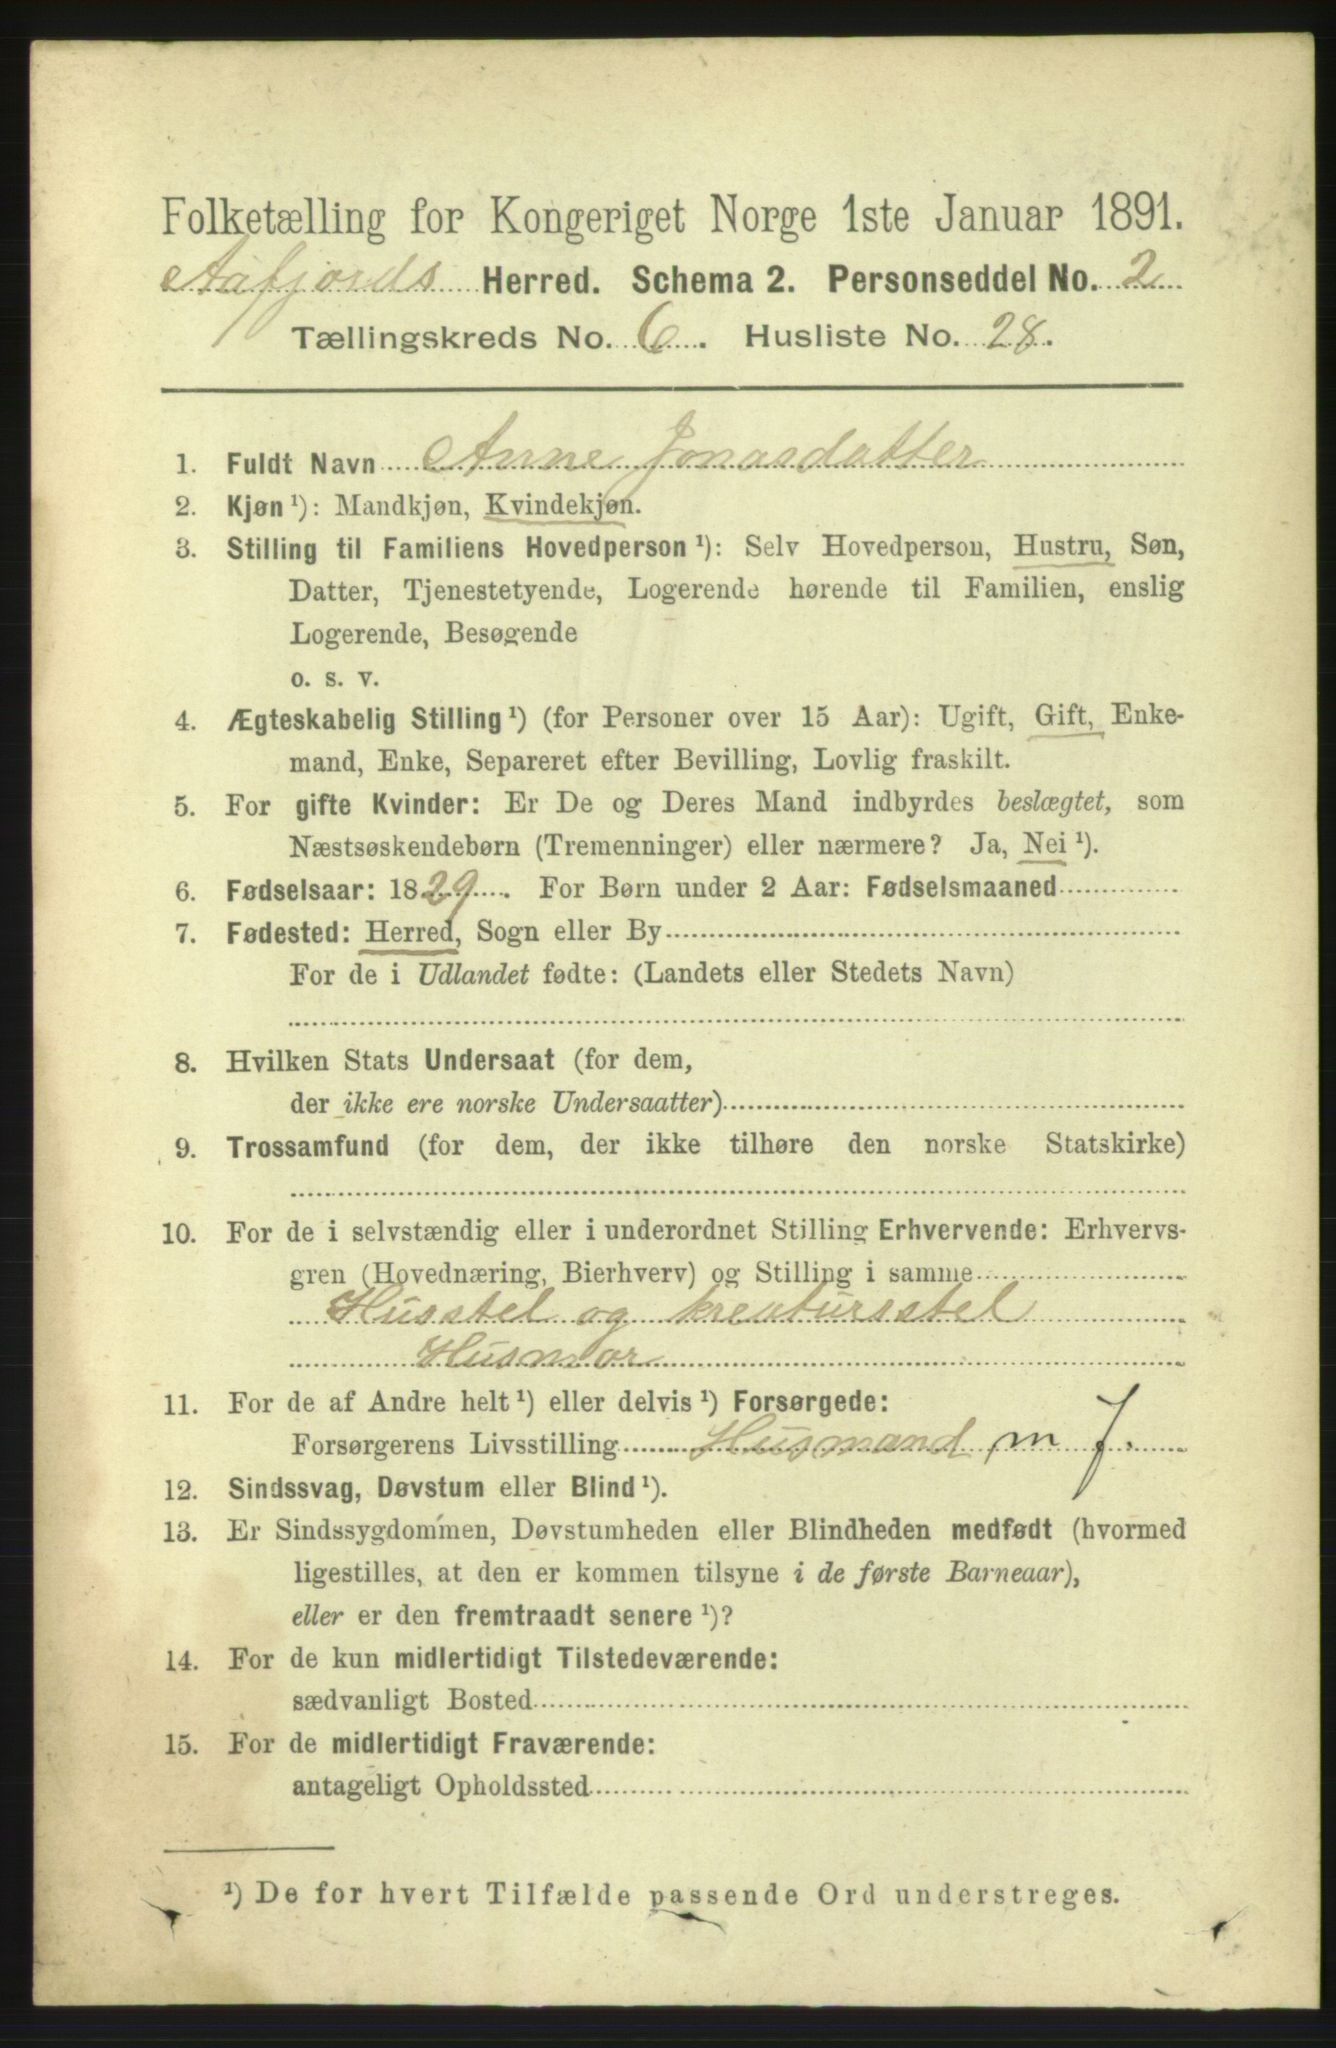 Folketælling for Kongeriget Norge 1ste Januar 1891.
Aafjords Herred. Schema 2. Personseddel No. 2
Tællingskreds No. 6. Husliste No. 28.
1. Fuldt Navn Anne Jonasdatter
2. Kjøn ¹): Mandkjøn, Kvindekjøn.
3. Stilling til Familiens Hovedperson ¹): Selv Hovedperson, Hustru, Søn,
Datter, Tjenestetyende, Logerende hørende til Familien, enslig
Logerende, Besøgende
o. s. v.
4. Ægteskabelig Stilling ¹) (for Personer over 15 Aar): Ugift, Gift, Enke-
mand, Enke, Separeret efter Bevilling, Lovlig fraskilt.
5. For gifte Kvinder: Er De og Deres Mand indbyrdes beslægtet, som
Næstsøskendebørn (Tremenninger) eller nærmere? Ja, Nei ¹).
6. Fødselsaar: 1829. For Børn under 2 Aar: Fødselsmaaned
7. Fødested: Herred, Sogn eller By
For de i Udlandet fødte: (Landets eller Stedets Navn)
8. Hvilken Stats Undersaat (for dem,
der ikke ere norske Undersaatter)
9. Trossamfund (for dem, der ikke tilhøre den norske Statskirke)
10. For de i selvstændig eller i underordnet Stilling Erhvervende: Erhvervs-
gren (Hovednæring, Bierhverv) og Stilling i samme
Husstel og kreaturstel
Husmor
11. For de af Andre helt ¹) eller delvis ¹) Forsørgede:
Forsørgerens Livsstilling Husmand m J.
12. Sindssvag, Døvstum eller Blind ¹).
13. Er Sindssygdommen, Døvstumheden eller Blindheden medfødt (hvormed
ligestilles, at den er kommen tilsyne i de første Barneaar),
eller er den fremtraadt senere ¹)?
14. For de kun midlertidigt Tilstedeværende:
sædvanligt Bosted
15. For de midlertidigt Fraværende:
antageligt Opholdssted
¹) De for hvert Tilfælde passende Ord understreges.